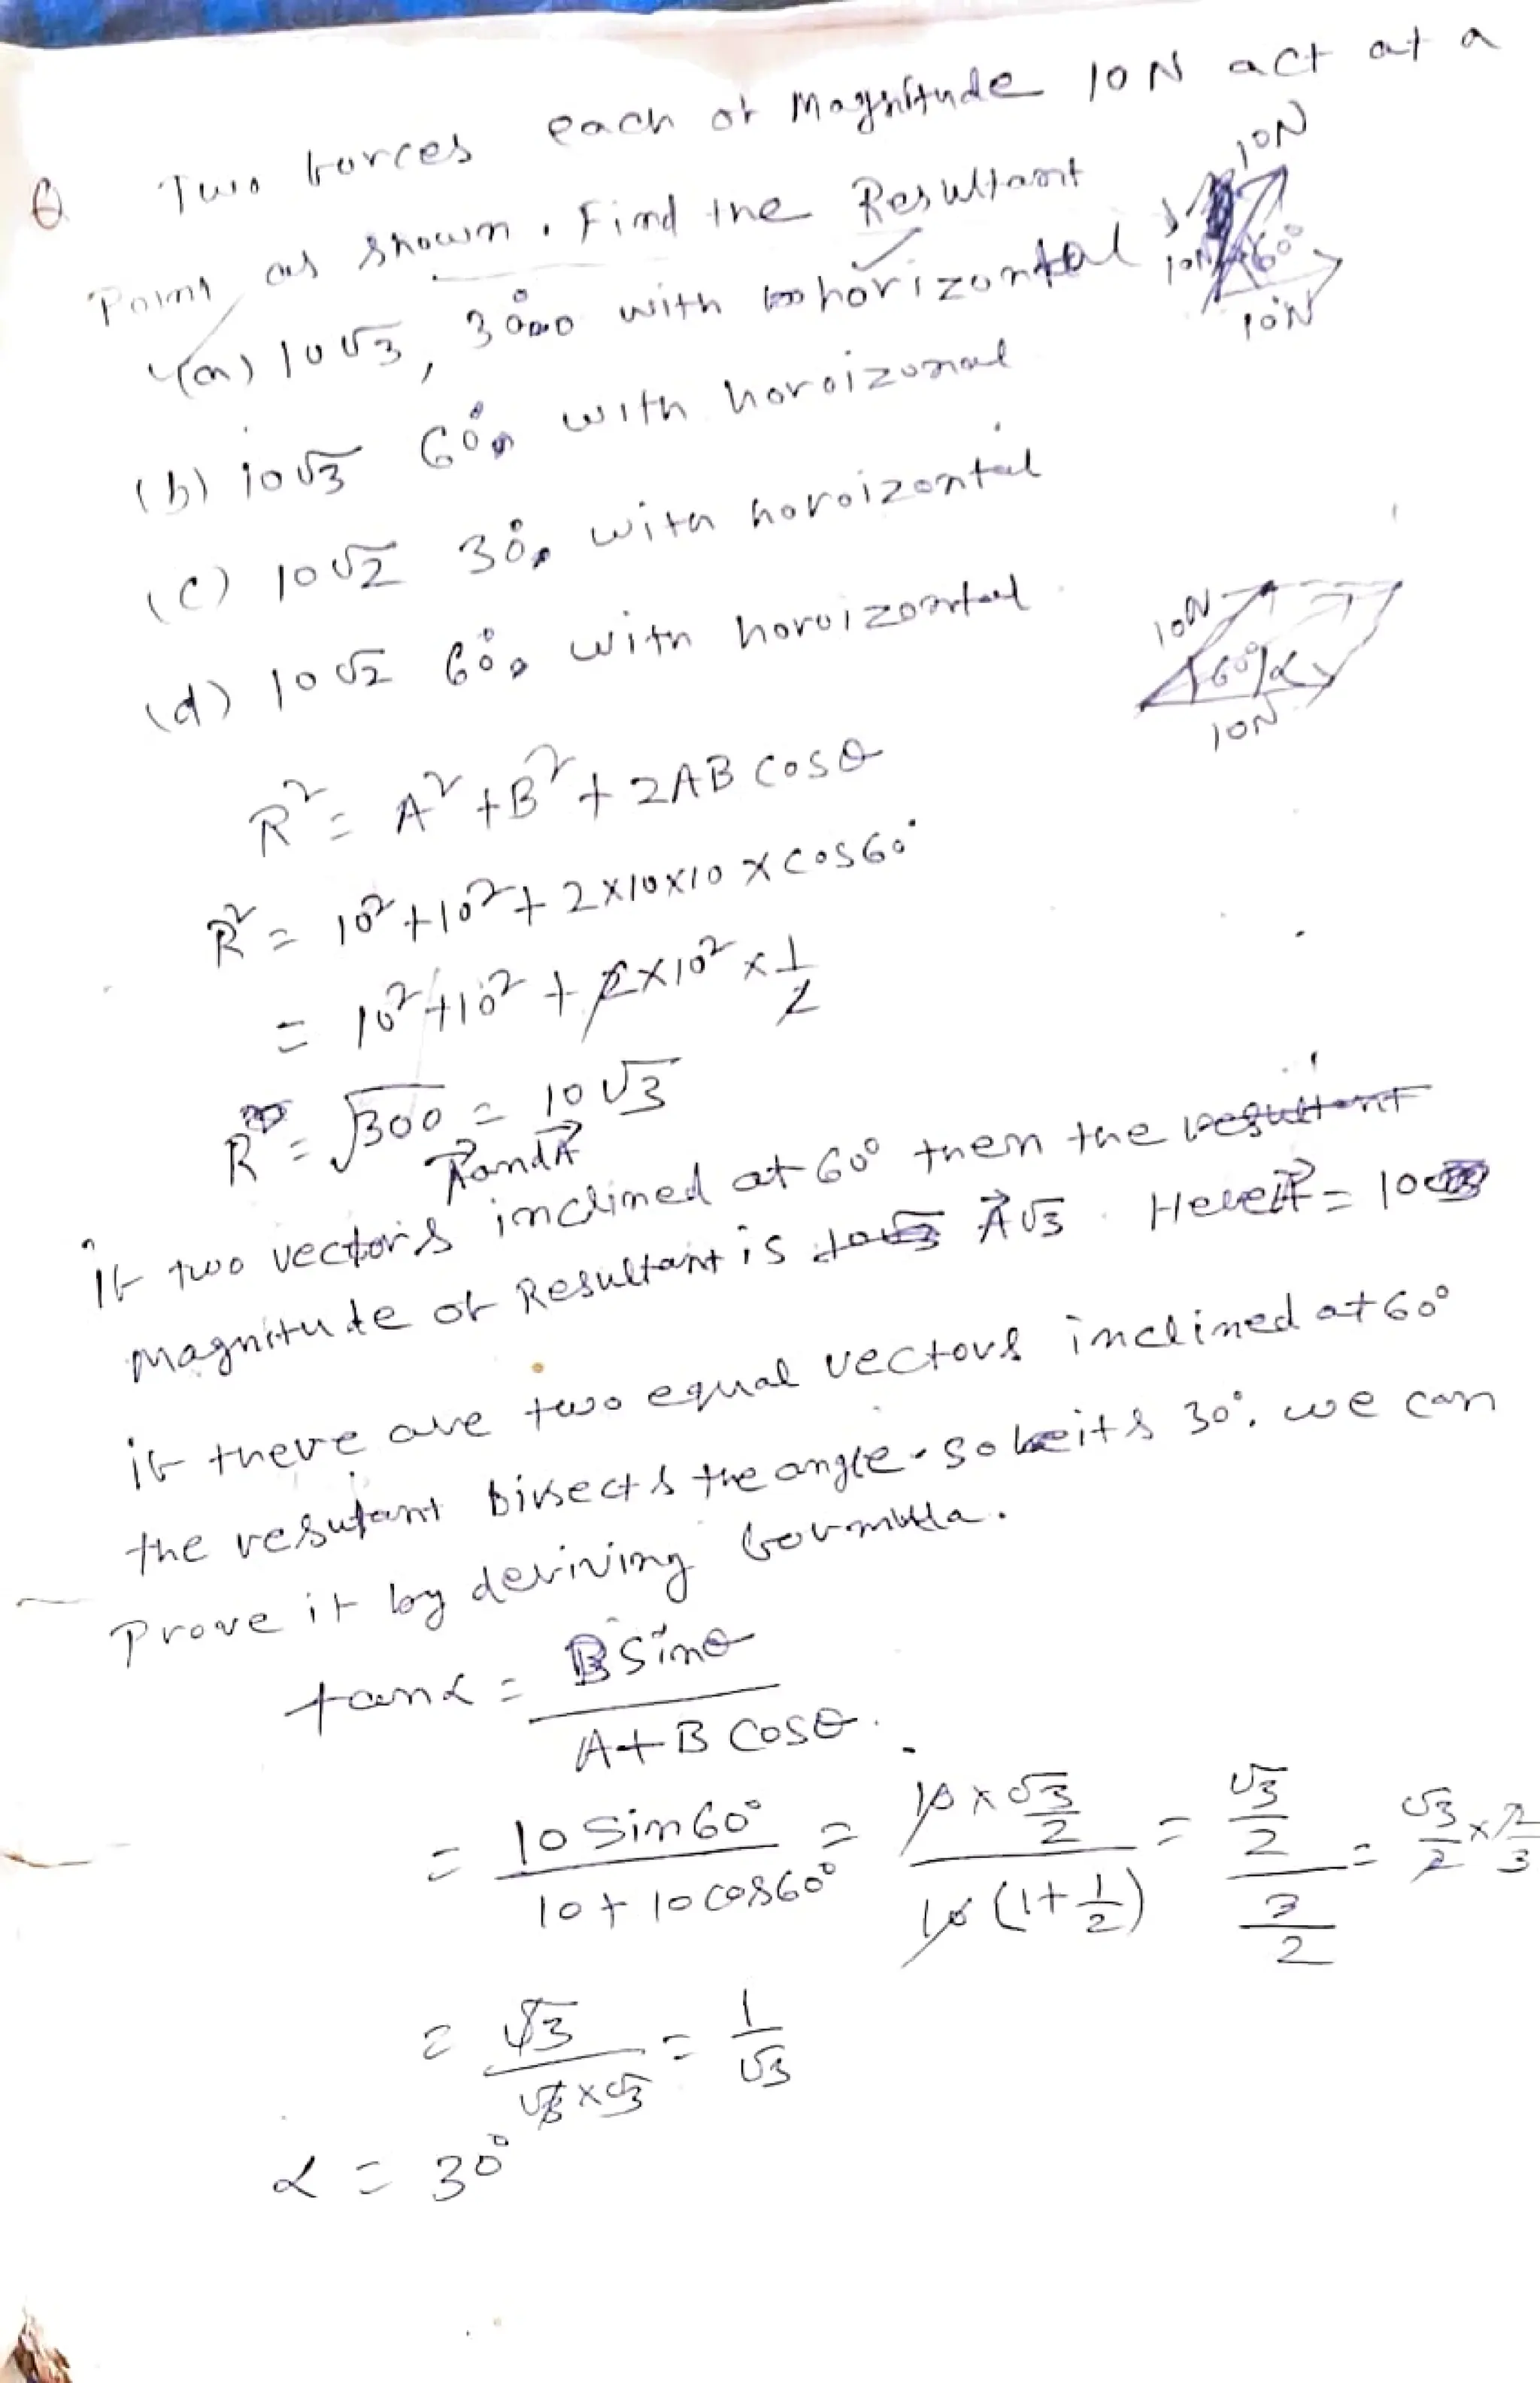 Q Two forces each of Magnitude 10 N act at a
Point as shown. Find the Resultant
10N
60°
10N
(a) 10√3, 30° with horizontal
(b) 10√3 60° with horoizonal
(c) 10√2 30° with horoizontal
(d) 10√2 60° with horoizontal
10N
60° α
10N
R² = A² + B² + 2AB cosθ
R² = 10² + 10² + 2×10×10 × cos60°
= 10² + 10² + 2×10² × 1/2
R = √300 = 10√3
If two vectors A⃗ and A⃗ inclined at 60° then the resultant
magnitude of Resultant is A⃗√3. Here A⃗ = 10
if there are two equal vectors inclined at 60°
the resutant bisects the angle. so its 30°. we can
Prove it by deriving formula.
tanα = B sinθ / A + B cosθ.
= 10 sin60° / 10 + 10 cos60° = 10 × √3/2 / 10 (1 + 1/2) = √3/2 / 3/2 = √3/2 × 2/3
= √3 / √3×√3 = 1/√3
α = 30°